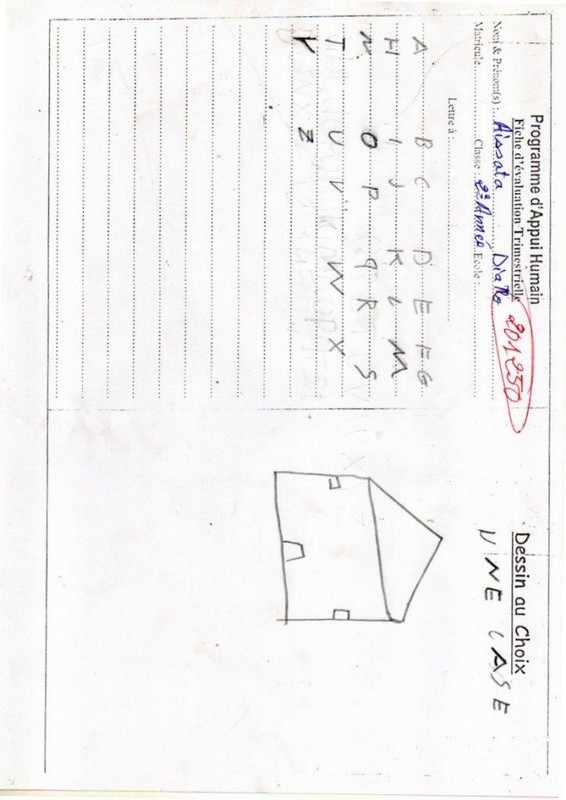 Programme d'Appui Humain
Fiche d'évaluation Trimestrielle
201250
Nom & Prénom(s) : Aissata Diallo
Matricule Classe : 2e Année Ecole
Lettre à :
A B C D E F G
H I J K L M
N O P q R S
T U V W X
Y Z
Dessin au Choix
UNE CASE